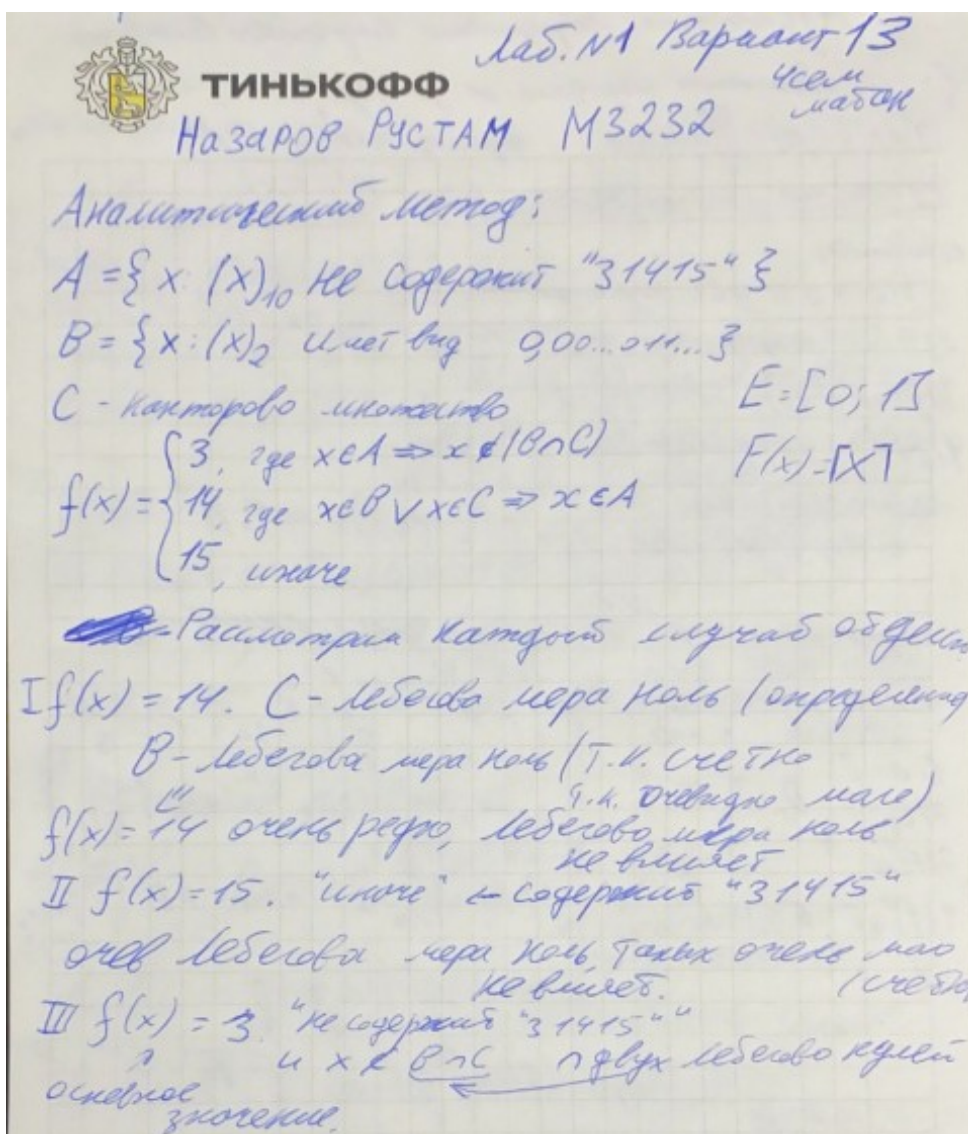 Лаб. №1 Вариант 13
ТИНЬКОФФ
матан
Назаров Рустам М3232
Аналитический метод:
A = { x : (x)₁₀ не содержит "31415" }
B = { x : (x)₂ имеет вид 0,00...011... }
C - канторово множество
E = [0; 1]
F(x) = ⌈x⌉
f(x) = { 3, где x∈A ⇒ x∉(B∩C)
14, где x∈B ∨ x∈C ⇒ x∈A
15, иначе
Рассмотрим каждый случай
I f(x) = 14. C - лебегова мера ноль (определение
B - лебегова мера ноль (т.к. счетно
т.к. очевидно мало)
f(x) = 14 очень редко, лебегова мера ноль
не влияет
II f(x) = 15. "иначе" ← содержит "31415"
очев лебегова мера ноль, таких очень мало
не влияет. (счетно
III f(x) = 3. "не содержит "31415""
и x ∉ B∩C ∩ двух лебегово нулей
основное
значение.